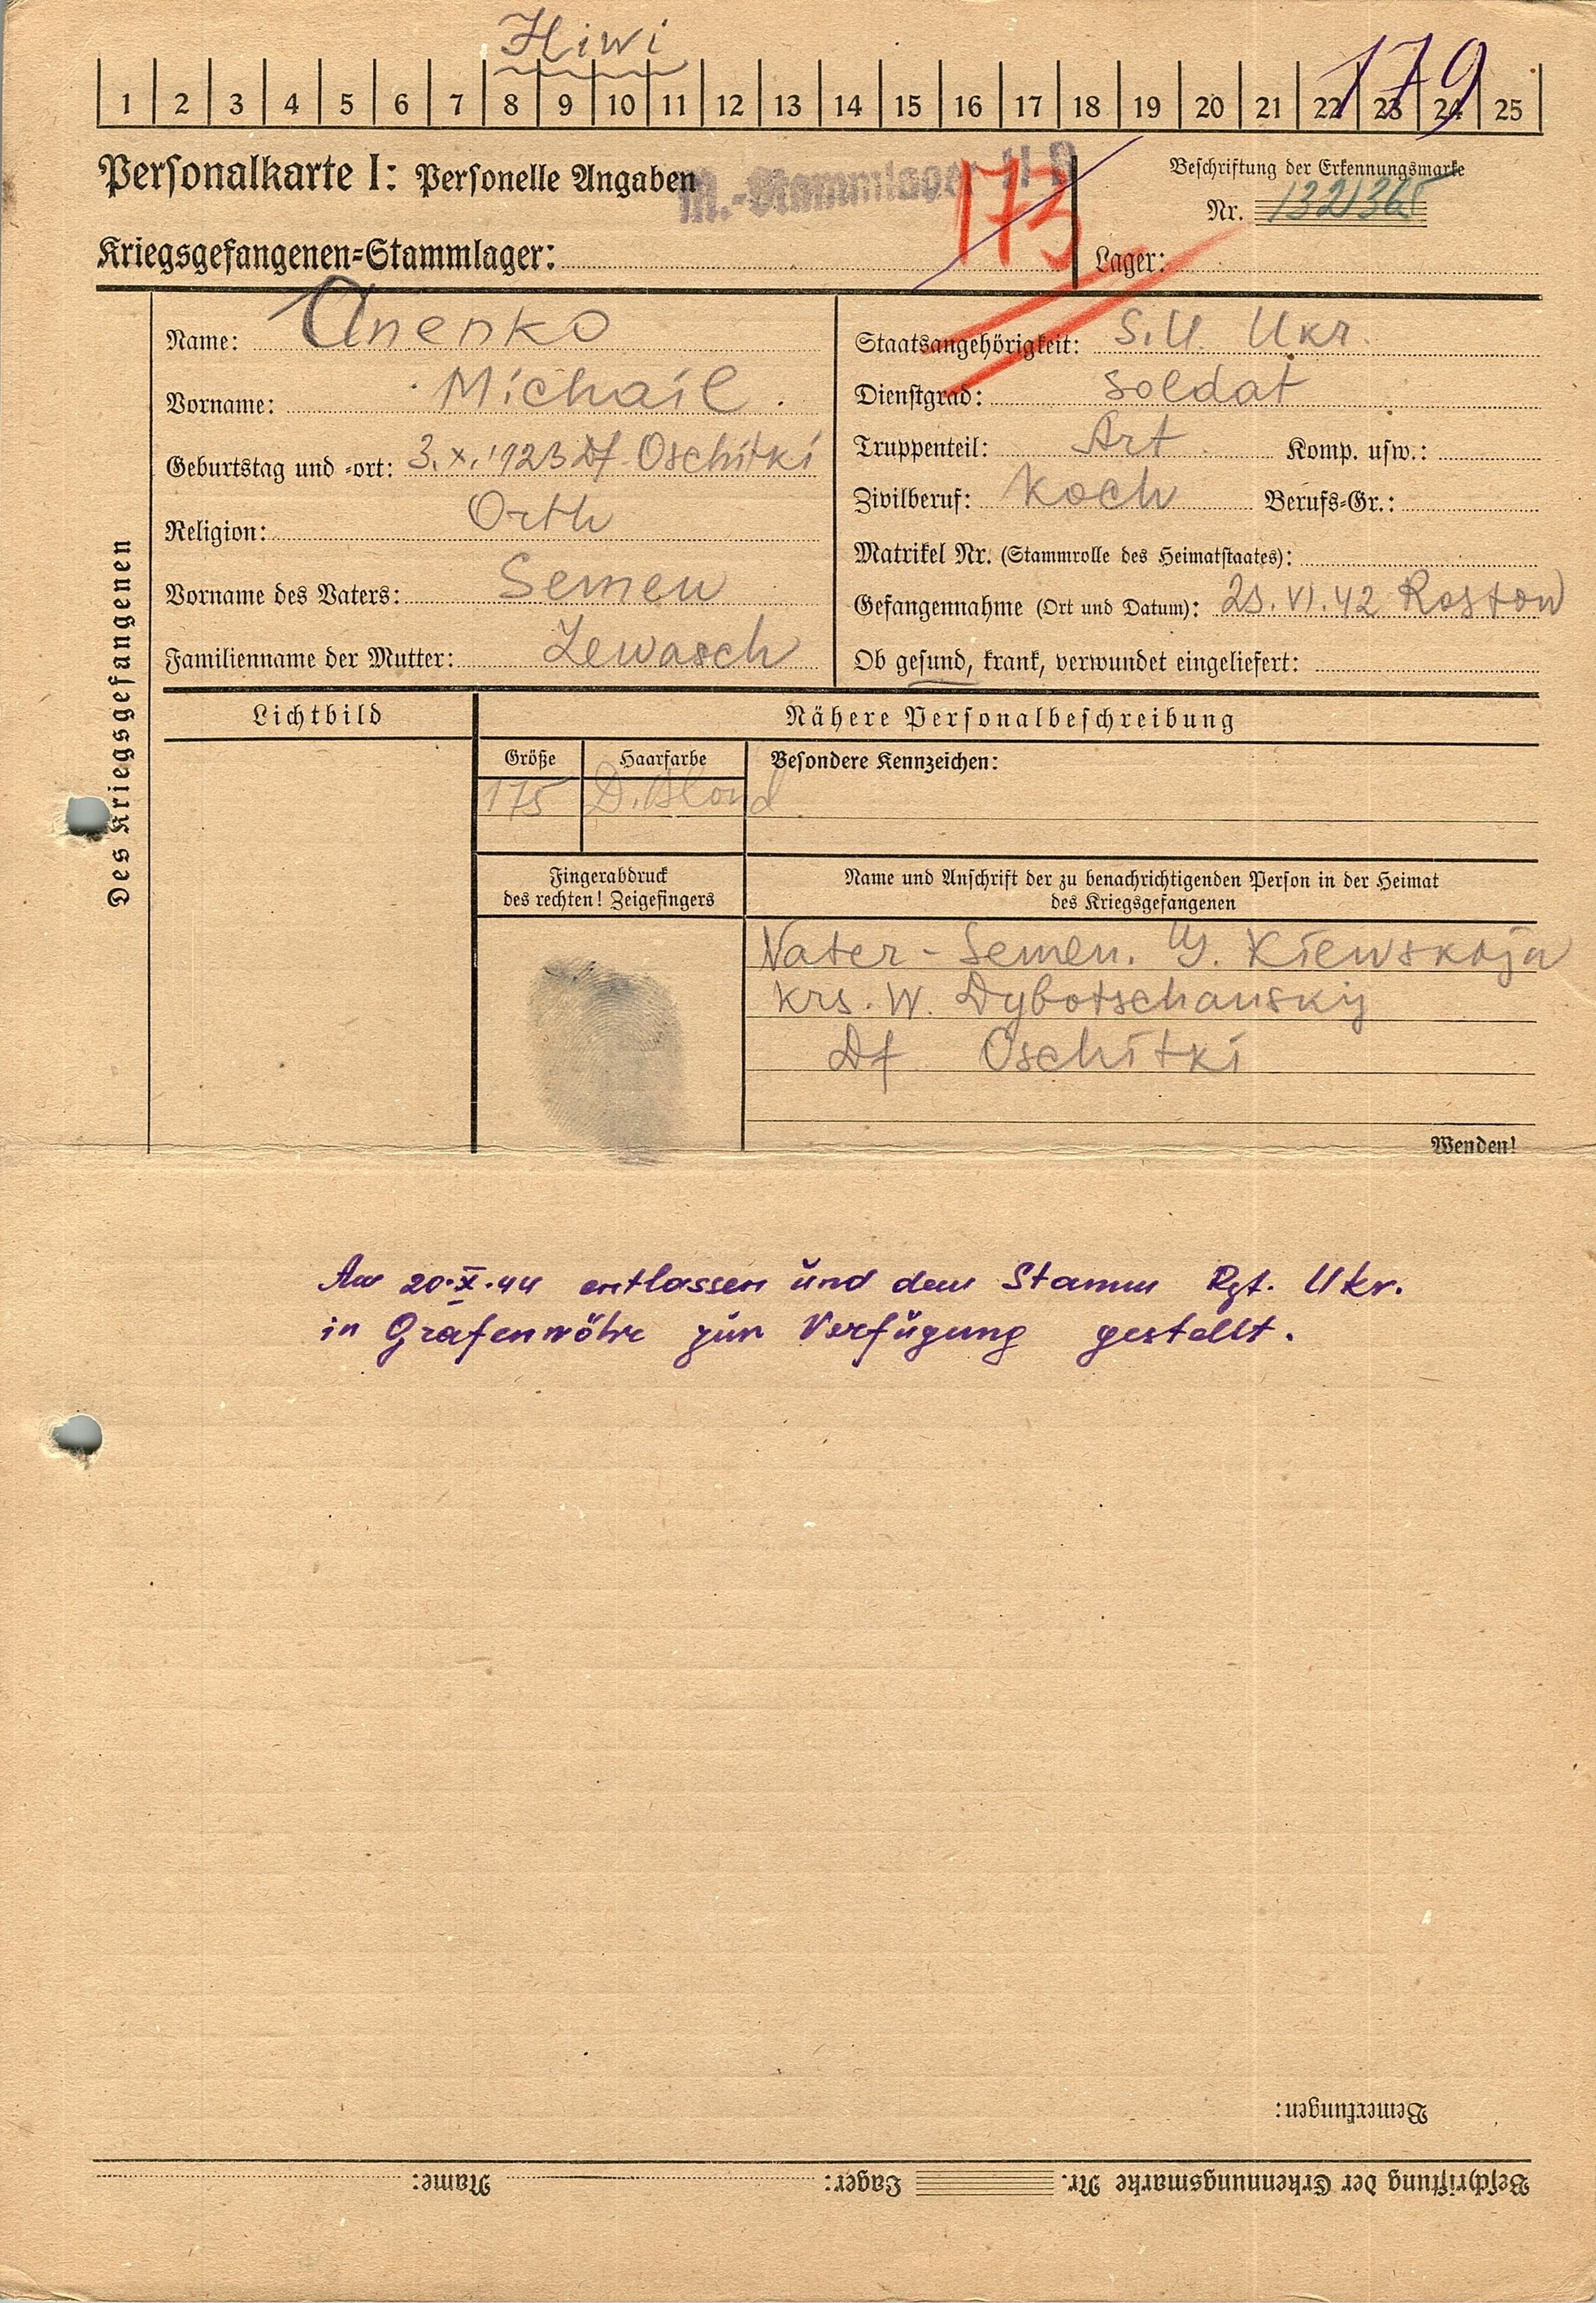 Hiwi
179
1 2 3 4 5 6 7 8 9 10 11 12 13 14 15 16 17 18 19 20 21 22 23 24 25
Personalkarte I: Personelle Angaben
M.-Stammlager II D
173
Beschriftung der Erkennungsmarke
Nr. 132136
Kriegsgefangenen-Stammlager:
Lager:
Des Kriegsgefangenen
Name: Anenko
Vorname: Michail.
Geburtstag und -ort: 3.X.1923 Df Oschitki
Religion: Orth
Vorname des Vaters: Semen
Familienname der Mutter: Lewasch
Staatsangehörigkeit: S.U. Ukr.
Dienstgrad: Soldat
Truppenteil: Art Komp. usw.:
Zivilberuf: Koch Berufs-Gr.:
Matrikel Nr. (Stammrolle des Heimatstaates):
Gefangennahme (Ort und Datum): 25.VI.42 Rostow
Ob gesund, krank, verwundet eingeliefert:
Lichtbild
Nähere Personalbeschreibung
Größe Haarfarbe Besondere Kennzeichen:
175 D.Blond
Fingerabdruck
des rechten! Zeigefingers
Name und Anschrift der zu benachrichtigenden Person in der Heimat
des Kriegsgefangenen
Vater - Semen. G. Kiewskaja
Krs. W. Dybotschansky
Df Oschitki
Wenden!
Am 20.X.44 entlassen und dem Stamm Rgt. Ukr.
in Grafenwöhr zur Verfügung gestellt.
Bemerkungen:
Beschriftung der Erkennungsmarke Nr. Lager: Name: